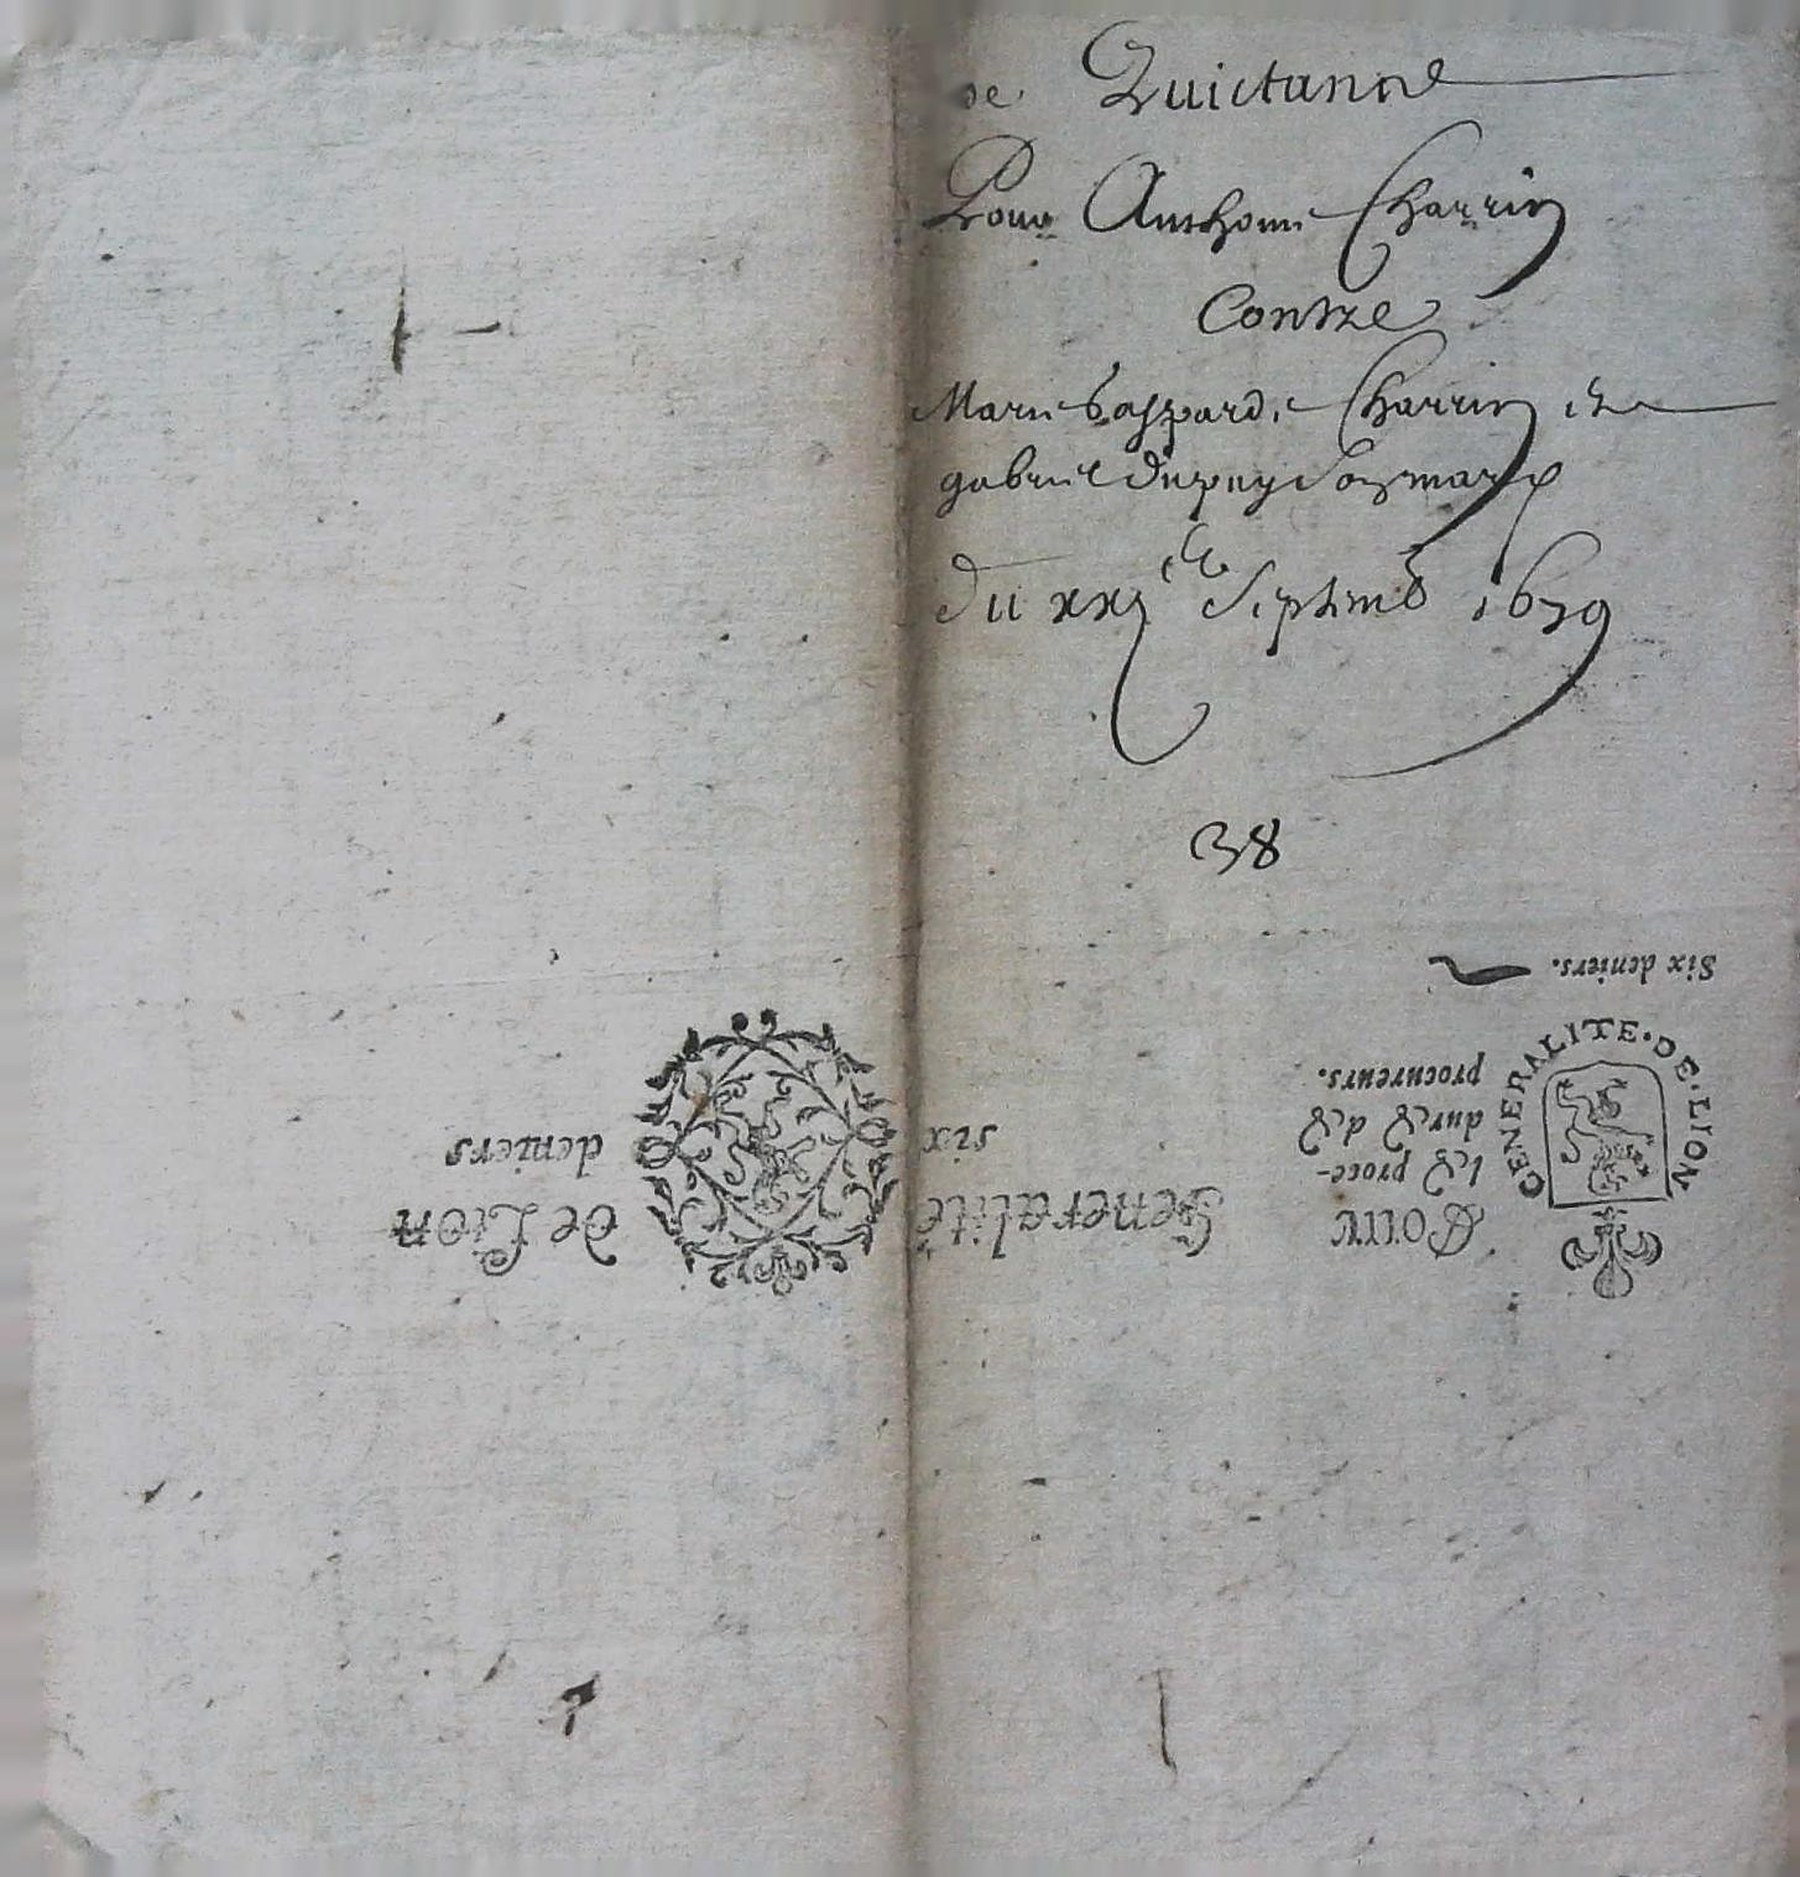 de Quictance
Pour Anthoine Charrin
Contre
Marie Gasparde Charrin et
gabriel dupuy son mary
du xxj^e Septemb 1679
38
Six deniers.
GENERALITE·DE·LION
Pour
les proce-
dures des
procureurs.
Generalité de Lion
six deniers